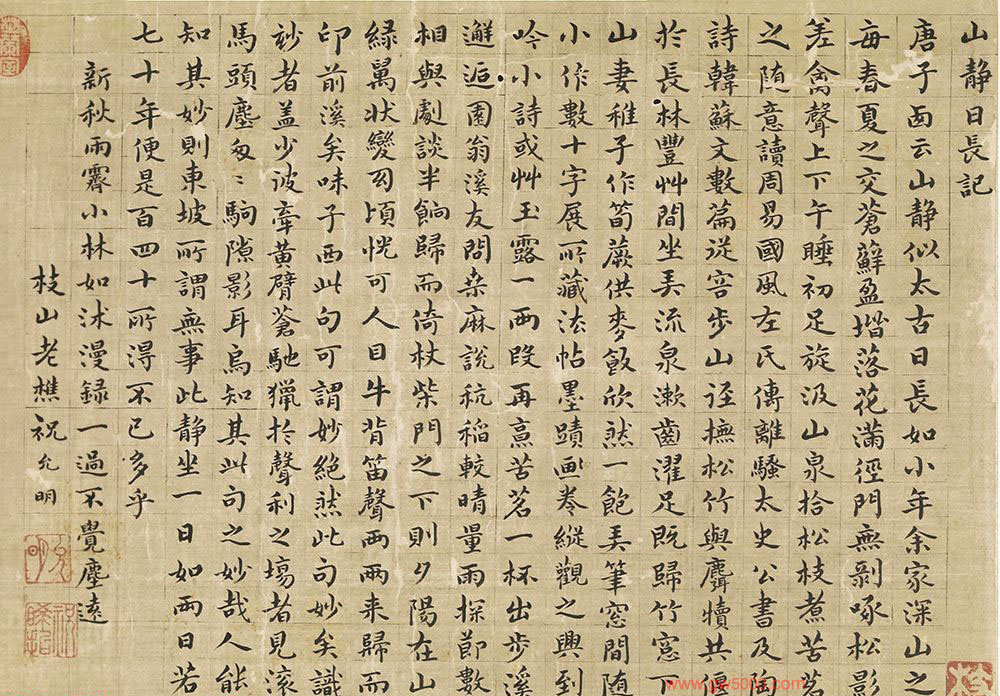 山静日長記
唐子西云山静似太古日長如小年余家深山之
每春夏之交蒼蘚盈堦落花滿徑門無剝啄松影
差禽聲上下午睡初足旋汲山泉拾松枝煮苦茗
之随意讀周易國風左氏傳離騷太史公書及
詩韓蘇文數篇從容步山逕撫松竹與麛犢共偃
於長林豐艸間坐弄流泉漱齒濯足既歸竹窓下
山妻稚子作筍蕨供麥飯欣然一飽弄筆窓間随
小作數十字展所藏法帖墨蹟畫卷縱觀之興到
吟小詩或艸玉露一兩段再烹苦茗一杯出步溪
邂逅園翁溪友問桒麻說秔稻較晴量雨探節數
相與劇談半餉歸而倚杖柴門之下則夕陽在山
緑萬状變幻頃恍可人目牛背笛聲兩兩来歸而
印前溪矣味子西此句可謂妙絶然此句妙矣識
妙者盖少彼牽黄臂蒼馳獵於聲利之塲者見滚
馬頭塵匆〻駒隙影耳烏知其此句之妙哉人能
知其妙則東坡所謂無事此静坐一日如兩日若
七十年便是百四十所得不已多乎
新秋雨霽小林如沐漫録一過不覺塵遠
枝山老樵祝允明
允明